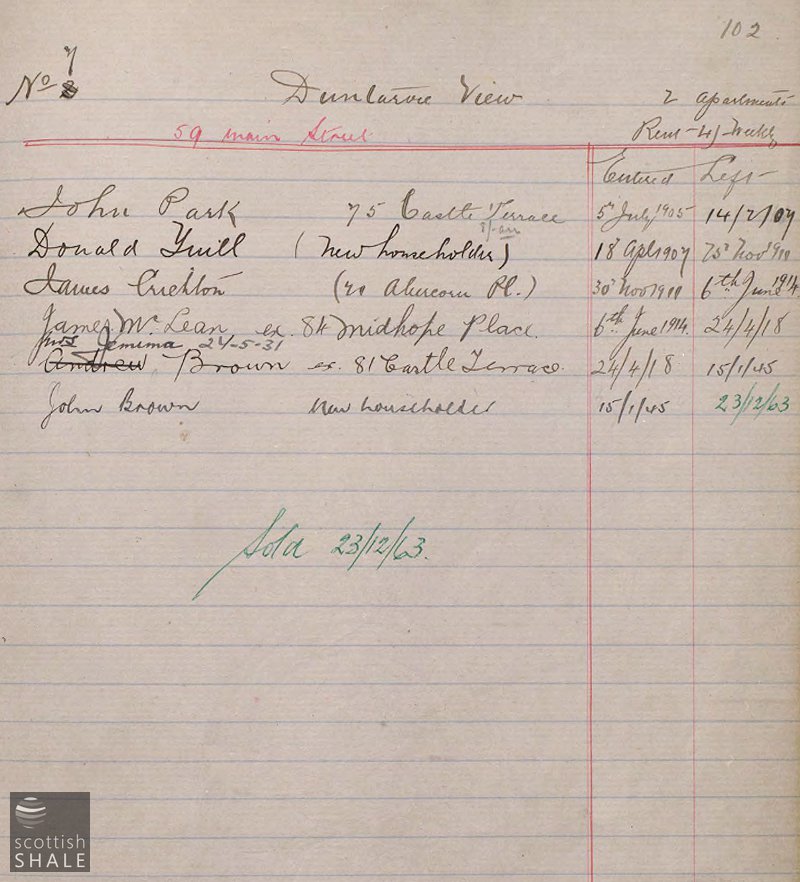 102
No 7
Duntarvie View
2 apartments
59 Main Street
Rent 4/- Weekly
Entered Left
John Park 75 Castle Terrace 5th July 1905 14/2/07
Donald Yuill (New householder) 18 Apl 1907 25 Nov 1911
James Crichton (20 Abercorn Pl.) 30 Nov 1911 6th June 1914
James McLean ex. 84 Midhope Place. 6th June 1914. 24/4/18
Mrs Jemima 24-5-31
Andrew Brown ex. 81 Castle Terrace. 24/4/18 15/1/45
John Brown New householder 15/1/45 23/12/63
Sold 23/12/63.
scottish
SHALE